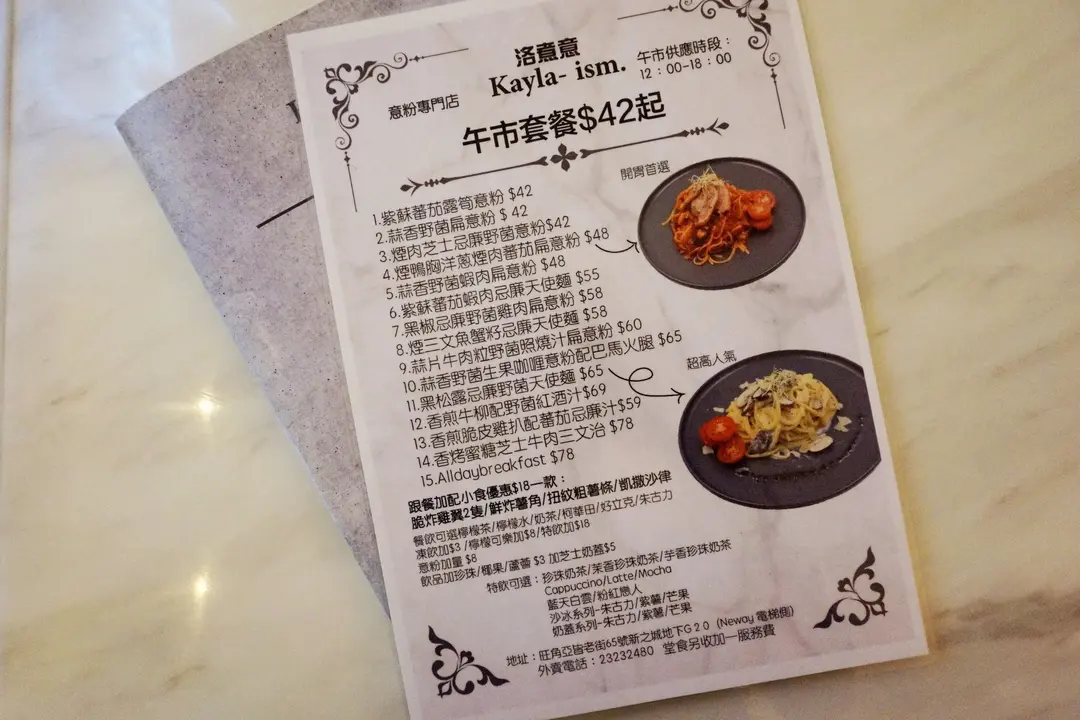 洛煮意
Kayla- ism.
意粉專門店
午市供應時段：
12：00-18：00
午市套餐$42起
開胃首選
1.紫蘇蕃茄露筍意粉 $42
2.蒜香野菌扁意粉 $ 42
3.煙肉芝士忌廉野菌意粉$42
4.煙鴨胸洋蔥煙肉蕃茄扁意粉 $48
5.蒜香野菌蝦肉扁意粉 $48
6.紫蘇蕃茄蝦肉忌廉天使麵 $55
7.黑椒忌廉野菌雞肉扁意粉 $58
8.煙三文魚蟹籽忌廉天使麵 $58
9.蒜片牛肉粒野菌照燒汁扁意粉 $60
10.蒜香野菌生果咖喱意粉配巴馬火腿 $65
11.黑松露忌廉野菌天使麵 $65
12.香煎牛柳配野菌紅酒汁$69
13.香煎脆皮雞扒配蕃茄忌廉汁$59
14.香烤蜜糖芝士牛肉三文治 $78
15.Alldaybreakfast $78
超高人氣
跟餐加配小食優惠$18一款：
脆炸雞翼2隻/鮮炸薯角/扭紋粗薯條/凱撒沙律
餐飲可選檸檬茶/檸檬水/奶茶/柯華田/好立克/朱古力
凍飲加$3 /檸檬可樂加$8/特飲加$18
意粉加量 $8
飲品加珍珠/椰果/蘆薈 $3 加芝士奶蓋$5
特飲可選：珍珠奶茶/茉香珍珠奶茶/芋香珍珠奶茶
Cappuccino/Latte/Mocha
藍天白雲/粉紅戀人
沙冰系列-朱古力/紫薯/芒果
奶蓋系列-朱古力/紫薯/芒果
地址：旺角亞皆老街65號新之城地下G 2 0（Neway 電梯側）
外賣電話：23232480 堂食另收加一服務費